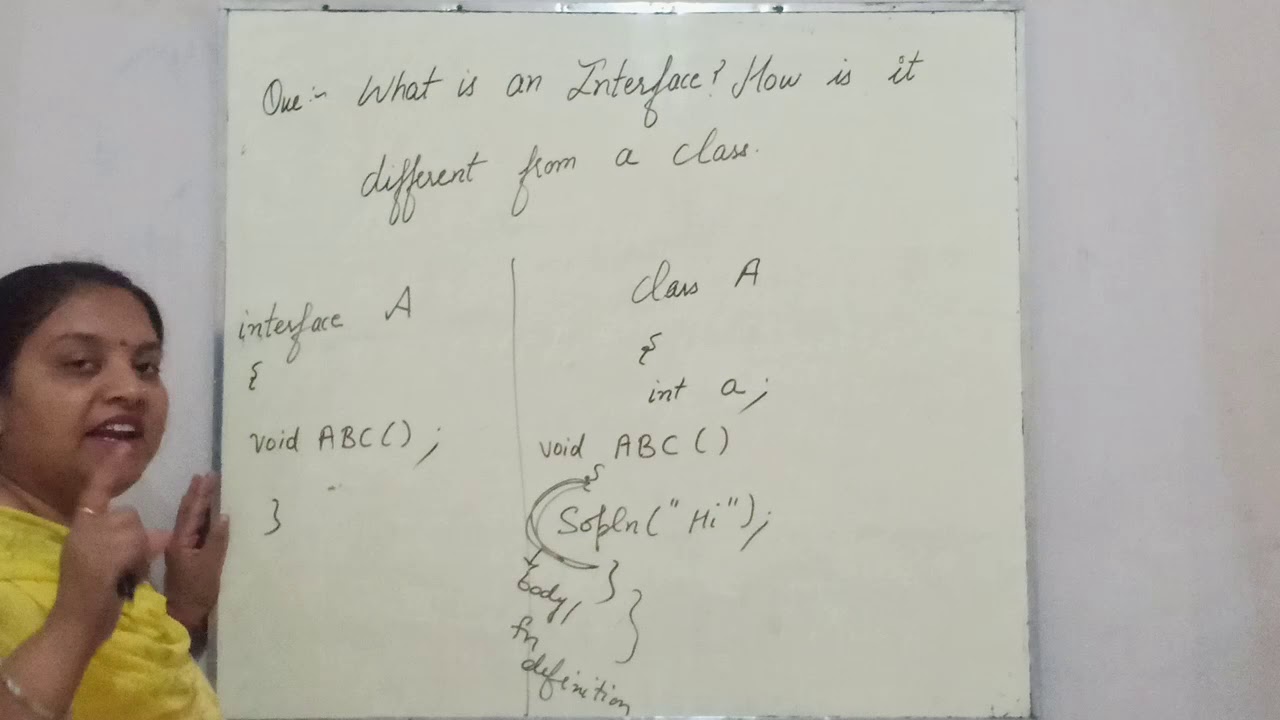 Que:- What is an Interface? How is it
different from a class.
interface A
{
void ABC();
}
class A
{
int a;
void ABC()
{
Sopln("Hi");
}
}
body,
fn
definition